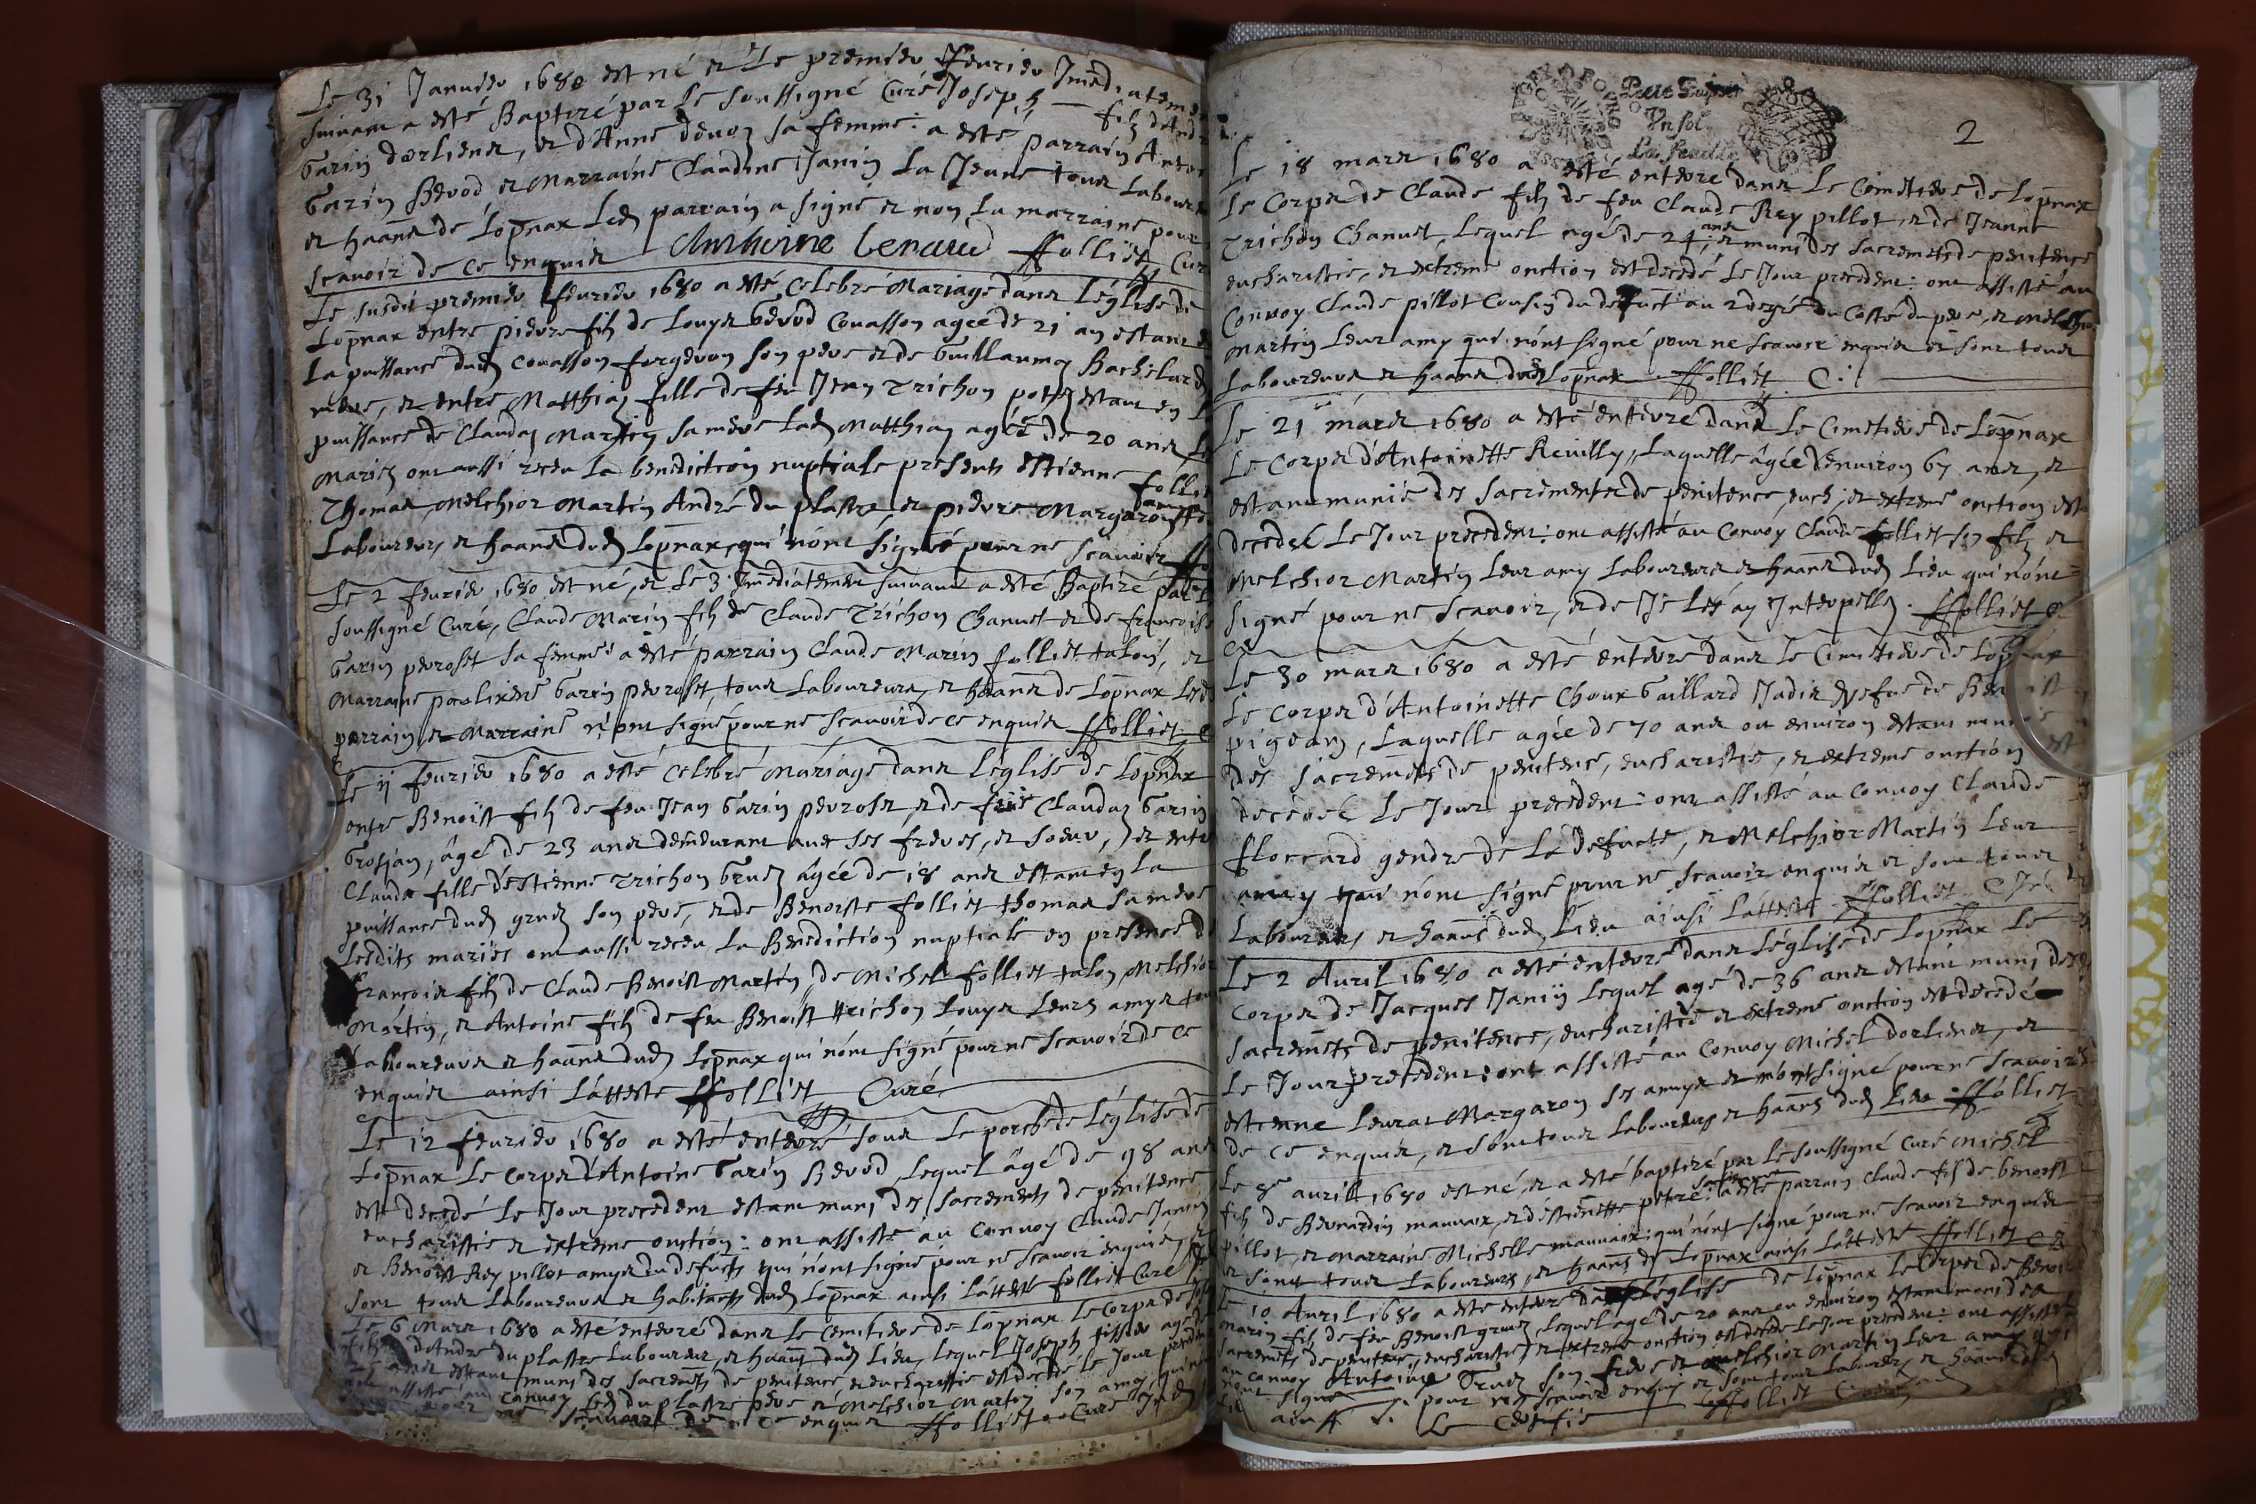 Le 31 Januier 1680 est né et Le premier feurier Jmēdiatemen
suiuant a esté Baptizé par Le soussigné Curé Joseph fils d'And
Garin dorlienes, et d'Anne deuoz sa femme: a esté parrain Antoi
Garin Beuod, et Marraine Claudine Janin La Jeune tous Laboure
et haān̄s de Lopnax Led. parrain a signé et non La marraine pour
scauoir de ce enquis Anthoine benaud ffolliet Cur
Le susdit premier feurier 1680 a esté Celebré Mariage dans L'église de
Lopnax entre pierre fils de Louys beuod Couasson agée de 21 an estant
La puissance dud. Couasson forgeron son pere et de Guillaumaz Bachelard
mere, et entre Matthiaz fille de feu Jean Trichon estant en
puissance de Claudaz Martin sa mere lad. Matthiaz agée de 20 ans Les
Mariez ont aussi receu La benediction nuptiale presents Estienne follie
Thomas, Melchior Martin André du plastre, et pierre Margaron
Laboureurs et haān̄s dud. Lopnax, qui n'ont signé pour ne scauoir
Le 2 feurier 1680 est né, et Le 3 Jmediatement suiuant a esté Baptizé par
soussigné Curé, Claude Marin fils de Claude Trichon Chanuet et de francoise
Garin perroset sa femme: a esté parrain Claude Marin folliet talon, et
Marraine pollixene Garin perroset, tous Laboureurs, et haān̄s de Lopnax Lesd
parrain et Marraine n'ont signé pour ne scauoir de ce enquis ffolliet C
Le 11 feurier 1680 a esté Celebré Mariage dans L'eglise de Lopnax
entre Benoist fils de feu Jean Garin perroset, et de Claudaz Garin
Grosjan, âgé de 23 ans demeurant auec ses freres, et soeur, et entre
Clauda fille d'Estienne Trichon Gruz âgée de 18 ans estant en La
puissance dud. gruz son pere, et de Benoiste folliet thomas sa mere
Lesdits mariés ont aussi receu La Benediction nuptiale en presence de
François fils de Claude Benoist Martin, de Michel folliet talon, Melchior
Martin, et Antoine fils de feu Benoist trichon Louys Leurs amys tous
Laboureurs et haān̄s dud. Lopnax qui n'ont signé pour ne scauoir de ce
enquis ainsi L'atteste ffolliet Curé
Le 12 feurier 1680 a esté enterré sous Le porche de L'église de
Lopnax Le Corps d'Antoine Garin Beuod, Lequel âgé de 98 ans
est decedé Le Jour precedent estant muni des sacrements de penitence
eucharistie et extreme onction: ont assisté au Conuoy Claude Janin
et Benoist Rey pillot amys du defunct qui n'ont signé pour ne scauoir enquis, et
sont tous Laboureurs et habitants dud. Lopnax ainsi L'atteste folliet Curé
Le 6 Mars 1680 a esté enterré dans Le Cemitiere de Lopnax Le Corps de Jos
fils d'Andre du plastre Laboureur, et haān̄t dud. Lieu, Lequel Joseph
estant muni des sacremēts de penitence et eucharistie est decedé le Jour preced
assisté au Conuoy Led. du plastre pere et Melchior Martin son amy, qui n'
scauoir de ce enquis ffolliet Curé
2
Vn sol
La feuille
Le 18 mars 1680 a esté enterré dans Le Cimetiere de Lopnax
Le Corps de Claude fils de feu Claude Rey pillot, et de Jeanne
Trichon Chanuet, Lequel agé de 24 ans, et muni des sacremēts de penitence
eucharistie, et extreme onction est decedé Le Jour precedent: ont assisté au
Conuoy Claude pillot Cousin du defunct au 2 degré du Costé du pere, et Melchio
Martin Leur amy qui n'ont signé pour ne scauoir enquis et sont tous
Laboureurs et haān̄s dud. Lopnax. ffolliet C.
Le 21 mars 1680 a esté enterré dans Le Cimetiere de Lopnax
Le Corps d'Antoinette Reuilly, Laquelle âgée d'enuiron 67 ans, et
estant munie des sacrements de penitence, euch, et extreme onction est
decedée Le Jour precedent: ont assisté au Conuoy Claude folliet son fils et
Melchior Martin Leur amy Laboureurs et haān̄s dud. Lieu qui n'ont
signé pour ne scauoir, et de Je Les ay Interpellez. ffolliet C
Le 30 mars 1680 a esté enterré dans Le Cimetiere de Lopnax
Le Corps d'Antoinette Choux Gaillard Jadis vefue de Benoist
pigeon, Laquelle agée de 70 ans ou enuiron estant munie
des sacremēts de penitence, eucharistie, et extreme onction est
decedée Le Jour precedent: ont assisté au Conuoy Claude
floccard gendre de La defuncte, et Melchior Martin Leur
amy qui n'ont signé pour ne scauoir enquis et sont tous
Laboureurs et haān̄s dud. Lieu ainsi L'atteste ffolliet C
Le 2 Auril 1680 a esté enterré dans L'église de Lopnax Le
Corps de Jacques Janin Lequel agé de 36 ans estant muni des
sacremēts de penitence, eucharistie et extreme onction est decedé
Le Jour precedent: ont assisté au Conuoy Michel dorlienes, et
estienne Leurat Margaron ses amys et n'ont signé pour ne scauoir
de ce enquis, et sont tous Laboureurs et haān̄s dud. Lieu ffolliet
Le 8e auril 1680 est né, et a esté baptizé par Le soussigné Curé Michel
fils de Bernardin mauuais, et d'estiennette sa feme: a esté parrain Claude fils de benoist
pillot, et Marraine Michelle mauuais: qui n'ont signé pour ne scauoir enquis
et sont tous Laboureurs, et haān̄s de Lopnax ainsi L'atteste ffolliet C
Le 10 Auril 1680 a esté enterré dans L'église de Lopnax Le Corps de Benoi
marin fils de feu Benoist gruz, Lequel agé de 20 ans ou enuiron estant muni des
sacremēts de penitence, eucharistie, et extreme onction est decedé Le Jour precedent: ont assisté
au Conuoy Antoine Gruz son frere et Melchior Martin Leur amy qui
n'ont signé pour ne scauoir enquis et sont tous Laboureurs et haān̄s dud
ainsi Le Certifie ffolliet